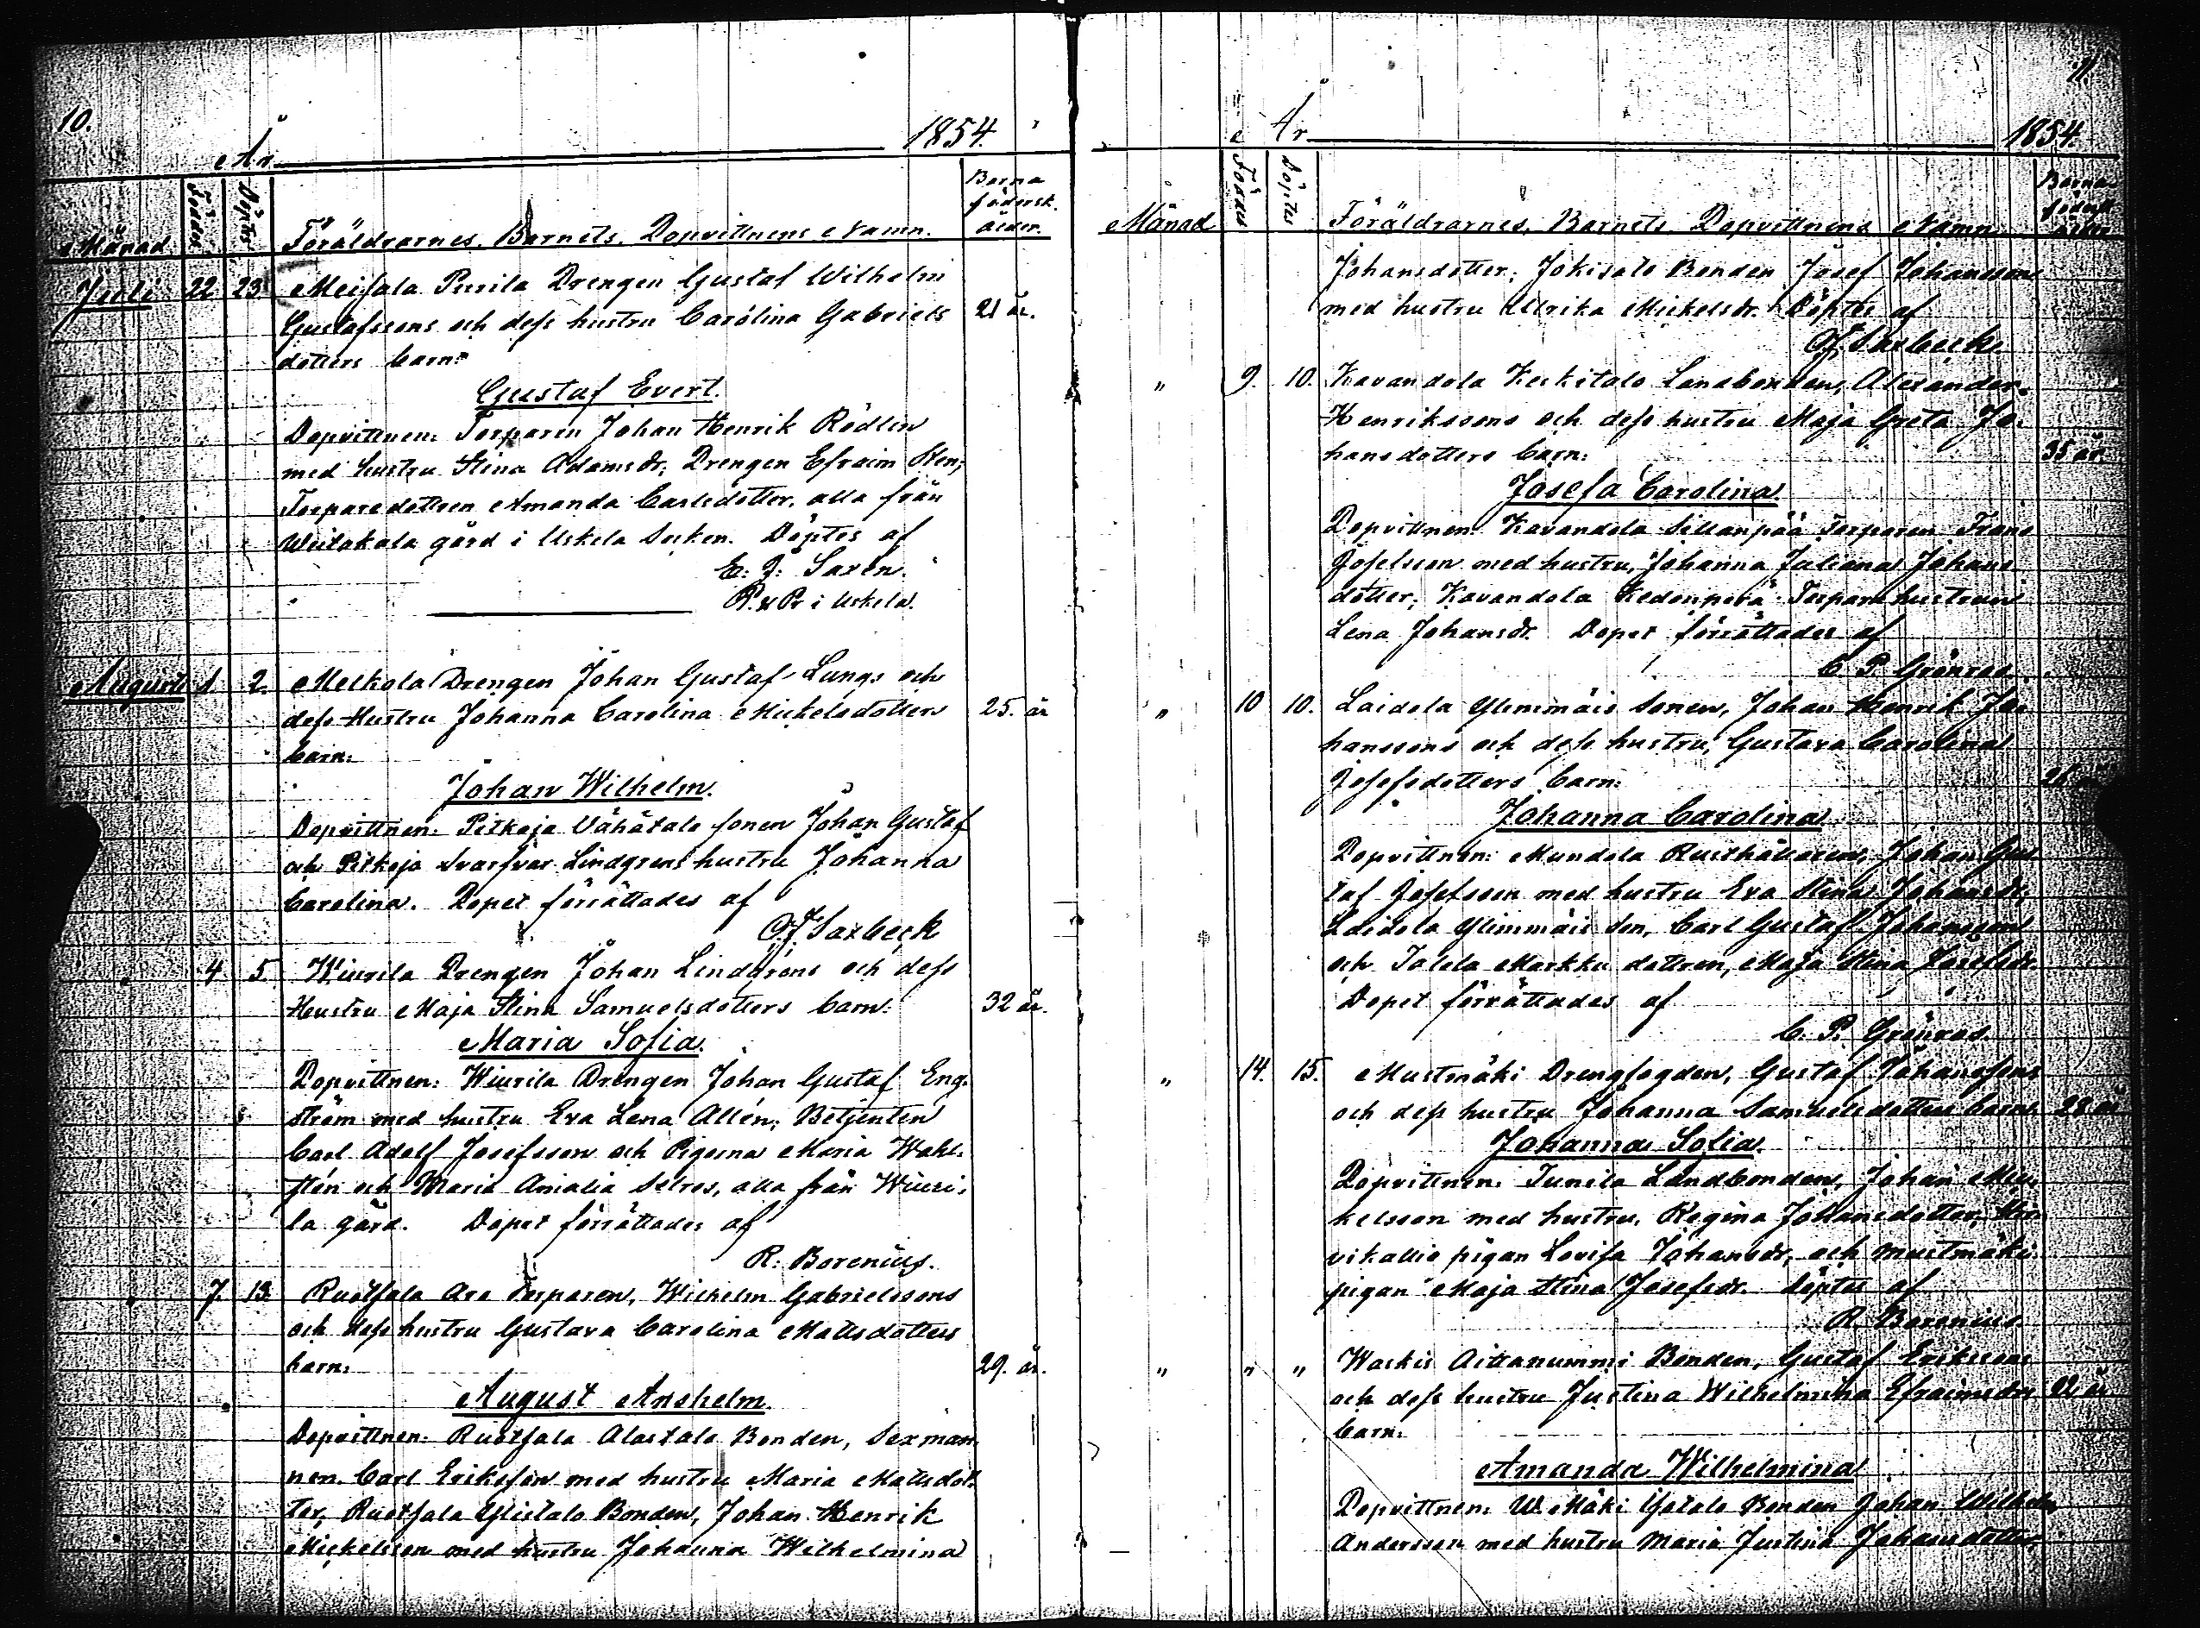 10.
År 1854.
Månad. Föddes Döptes Föräldrarnes, Barnets, Dopvittnens Namn. Barna födersk. ålder.
Juli 22 23 Meisala Purila Drengen Gustaf Wilhelm
Gustafssons och dess hustru Carolina Gabriels 21 år.
dotters barn:
Gustaf Evert.
Dopvittnen: Torparen Johan Henrik Rödlin
med hustru Stina Adamsdr, Drengen Efraim Ren,
Torparedottren Amanda Carlsdotter, alla från
gård i Uskela Socken. Döptes af
E: J: Saxén.
P. & Pr i Uskela.
Augusti 1 2. Melkola Drengen Johan Gustaf Lungs och
dess Hustru Johanna Carolina Mickelsdotters 25. år
barn:
Johan Wilhelm.
Dopvittnen: Pitkeja Vähätalo sonen Johan Gustaf
och Pitkeja Svarfvar Lindgrens hustru Johanna
Carolina. Dopet förrättades af
O.F. Saxbeck
4 5 Wiurila Drengen Johan Lindgrens och dess
Hustru Maja Stina Samuelsdotters barn: 32 år.
Maria Sofia.
Dopvittnen: Wiurila Drengen Johan Gustaf Eng-
ström med hustru Eva Lena Allén; Betjenten
Carl Adolf Josefsson och Pigorna Maria Wahl-
stén och Maria Amalia Selros, alla från Wiuri-
la gård. Dopet förrättades af
R: Borenius.
7. 13 Ruotsala Ara Torparen, Wilhelm Gabrielssons
och dess hustru Gustava Carolina Mattsdotters
barn: 29. år.
August Anshelm.
Dopvittnen: Ruotsala Alastalo Bonden, Sexman-
nen Carl Eriksson med hustru Maria Mattsdot-
ter, Ruotsala Ylistalo Bonden, Johan Henrik
Mickelsson med hustru Johanna Wilhelmina
11.
År 1854.
Månad Föddes Döptes Föräldrarnes, Barnets, Dopvittnens Namn Barna födersk. ålder
Johansdotter; Jokisalo Bonden Josef Johansson
med hustru Ulrika Mickelsdr. Döptes af
O.F. Saxbeck.
" 9. 10. Kavandola Keskitalo Landbonden, Alexander
Henrikssons och dess hustru Maja Greta Jo-
hansdotters barn: 35 år
Josefa Carolina.
Dopvittnen: Kavandola Sillanpää Torparen Frans
Josefsson med hustru, Johanna Juliana Johans
dotter; Kavandola Kedonperä Torpare hustrun
Lena Johansdr. Dopet förrättades af
C. P. Grönros.
" 10 10. Laidola Ylimmäis Sonen, Johan Henrik Jo-
hanssons och dess hustru, Gustava Carolina
Josefsdotters barn:
Johanna Carolina
Dopvittnen: Mundola Rusthållaren, Johan Gus-
taf Josefsson med hustru Eva Stina Johansdr,
Laidola Ylimmäis Son, Carl Gustaf Johansson
och Markku dottren, Maja Stina Josefsdr.
Dopet förrättades af
C. P. Grönros.
" 14. 15. Mustmäki Drengfogden, Gustaf Johanssons
och dess hustru Johanna Samuelsdotters barn: 28 år
Johanna Sofia.
Dopvittnen: Tunila Landbonden, Johan Mic-
kelsson med hustru, Regina Johansdotter,
vikallio pigan Lovisa Johansdr, och Mustmäki
pigan Maja Stina Josefsdr. Döptes af
R. Borenius.
" " " Waskis Aittanummi Bonden, Gustaf Erikssons
och dess hustru Justina Wilhelmina Efraimsdrs år
barn:
Amanda Wilhelmina
Dopvittnen: W. Mäki Ylötalo Bonden Johan Wilhelm
Andersson med hustru Maria Justina Johansdotter,